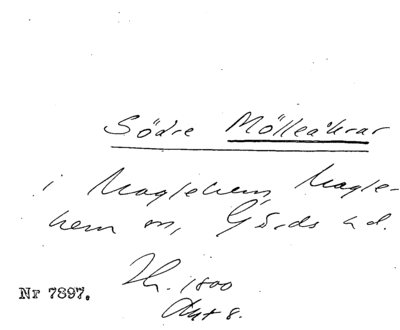 Södre Mölleåkrar
i Maglehem, Magle-
hem sn, Gärds hd.
Nr 7897.
1800
Akt 8.